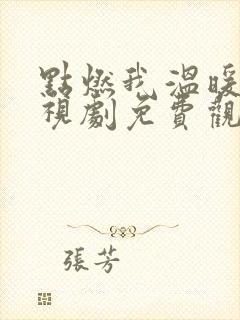 點燃我溫暖
視劇免費觀
張芳